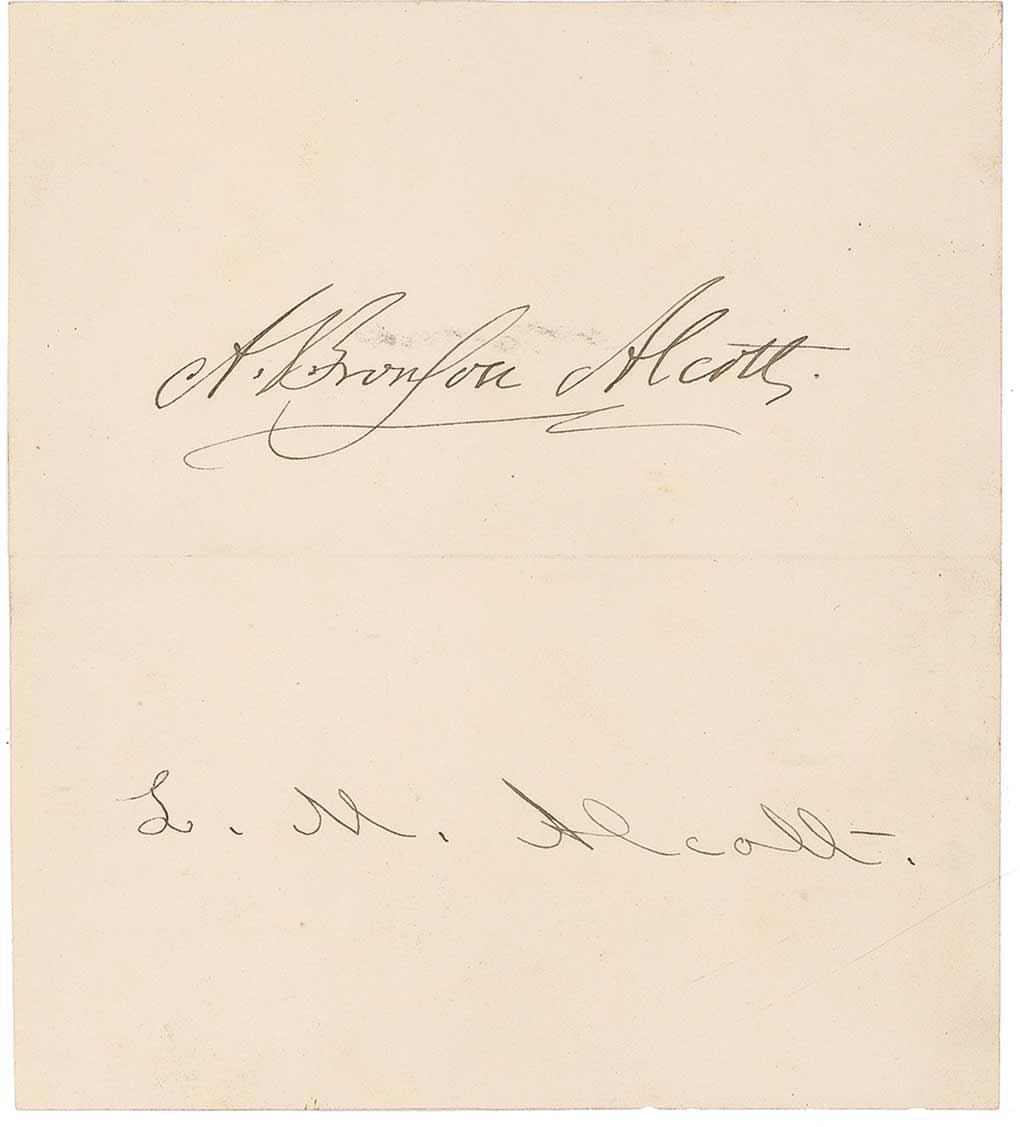 A. Bronson Alcott.
L. M. Alcott.